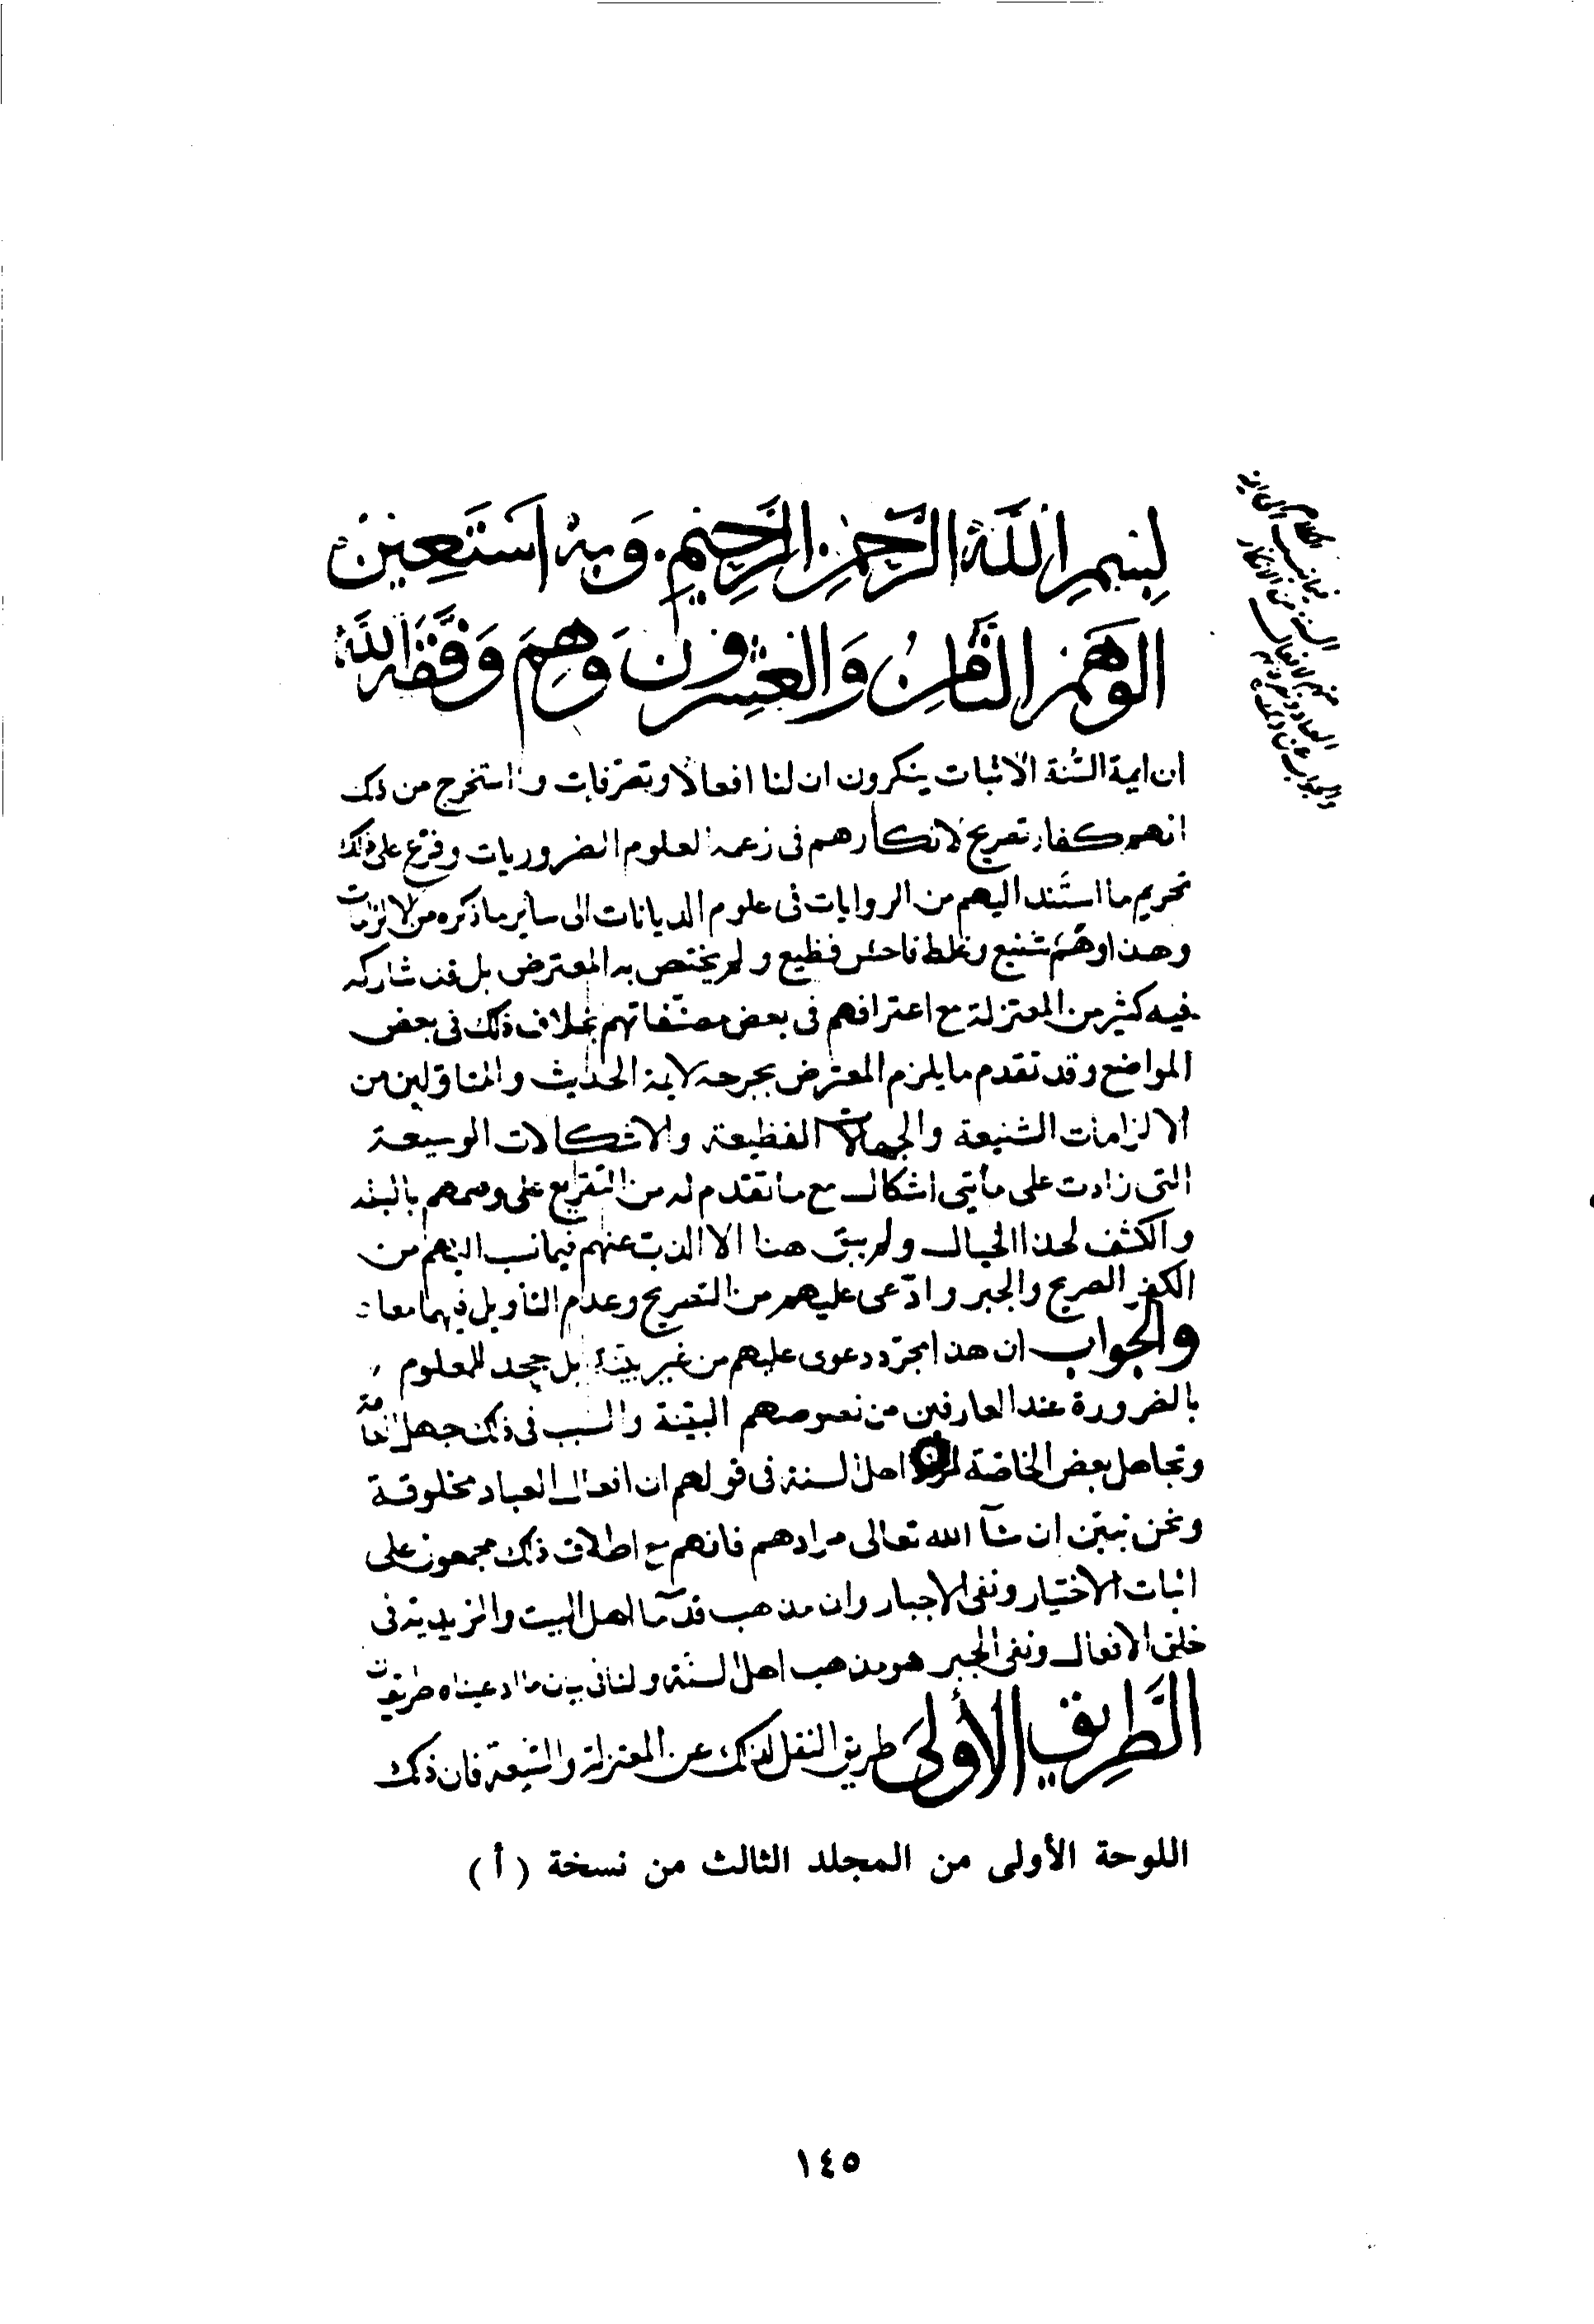 بِسْمِ اللَّهِ الرَّحْمٰنِ الرَّحِيْمِ . وَبِهِ اَسْتَعِينُ
الوَهَمُ الثَّامِنُ وَالعِشرُونَ وَهِمَ وَفَّقَهُ اللَّهُ
ان ايمة السُّنة الاثبات ينكرون ان لنا افعالا وتصرفات واستخرج من ذلك
انهم كفار تصريح لانكارهم فى زعمه العلوم الضروريات وفرّع على ذلك
تحريم ما استند اليهم من الروايات فى علوم الديانات الى ساير ما ذكره من الالزامات
وهذا وهمٌ شنيع وغلط فاحش فظيع ولم يختص به المعترض بل قد شاركه
فيه كثير من المعتزلة مع اعترافهم فى بعض مصنّفاتهم بخلاف ذلك فى بعض
المواضع وقد تقدم ما يلزم المعترض بجرحه لايمة الحديث والمتاولين من
الالزامات الشنيعة والجهالات الفظيعة والاشكالات الوسيعة
التى زادت على مأيتى اشكال مع ما تقدم له من التقريع على وصمهم بالبله
والكشف لهذا الخيال ولم يبق هنا الا الذب عنهم فيما نسب اليهم من
الكفر الصريح والجبر وادّعى عليهم من التصريح وعدم التاويل فيهما معا
والجواب ان هذا مجرّد دعوى عليهم من غير بيّنة بل جحد للمعلوم
بالضرورة عند العارفين من نصوصهم البيّنة والسبب فى ذلك جهل العامة
وتجاهل بعض الخاصّة اهل السنة فى قولهم ان افعال العباد مخلوقة
ونحن نبيّن ان شآ الله تعالى مرادهم فانهم مع اطلاق ذلك مجمعون على
اثبات الاختيار ونفى الاجبار وان مذهب قدمآ اهل البيت والزيدية فى
خلق الافعال ونفى الجبر هو مذهب اهل السنّة ولنا فى بيان ما ادعيناه طريقان
الطَّرِيقُ الأُولىَ طريق النقل لذلك عن المعتزلة والشيعة فان ذلك
الكلام
فيما نسب
السنة من الانكار
اللوحة الأولى من المجلد الثالث من نسخة (أ)
١٤٥